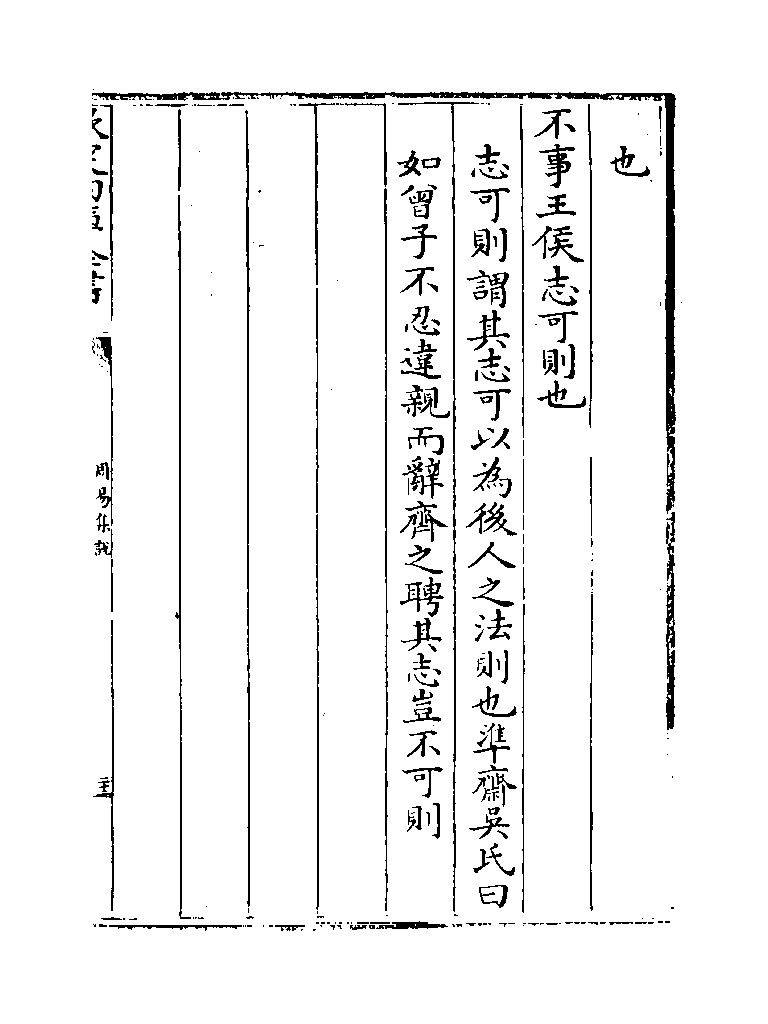 也
不事王侯志可則也
志可則謂其志可以為後人之法則也準齋吳氏曰
如曾子不忍違親而辭齊之聘其志豈不可則
周易集說